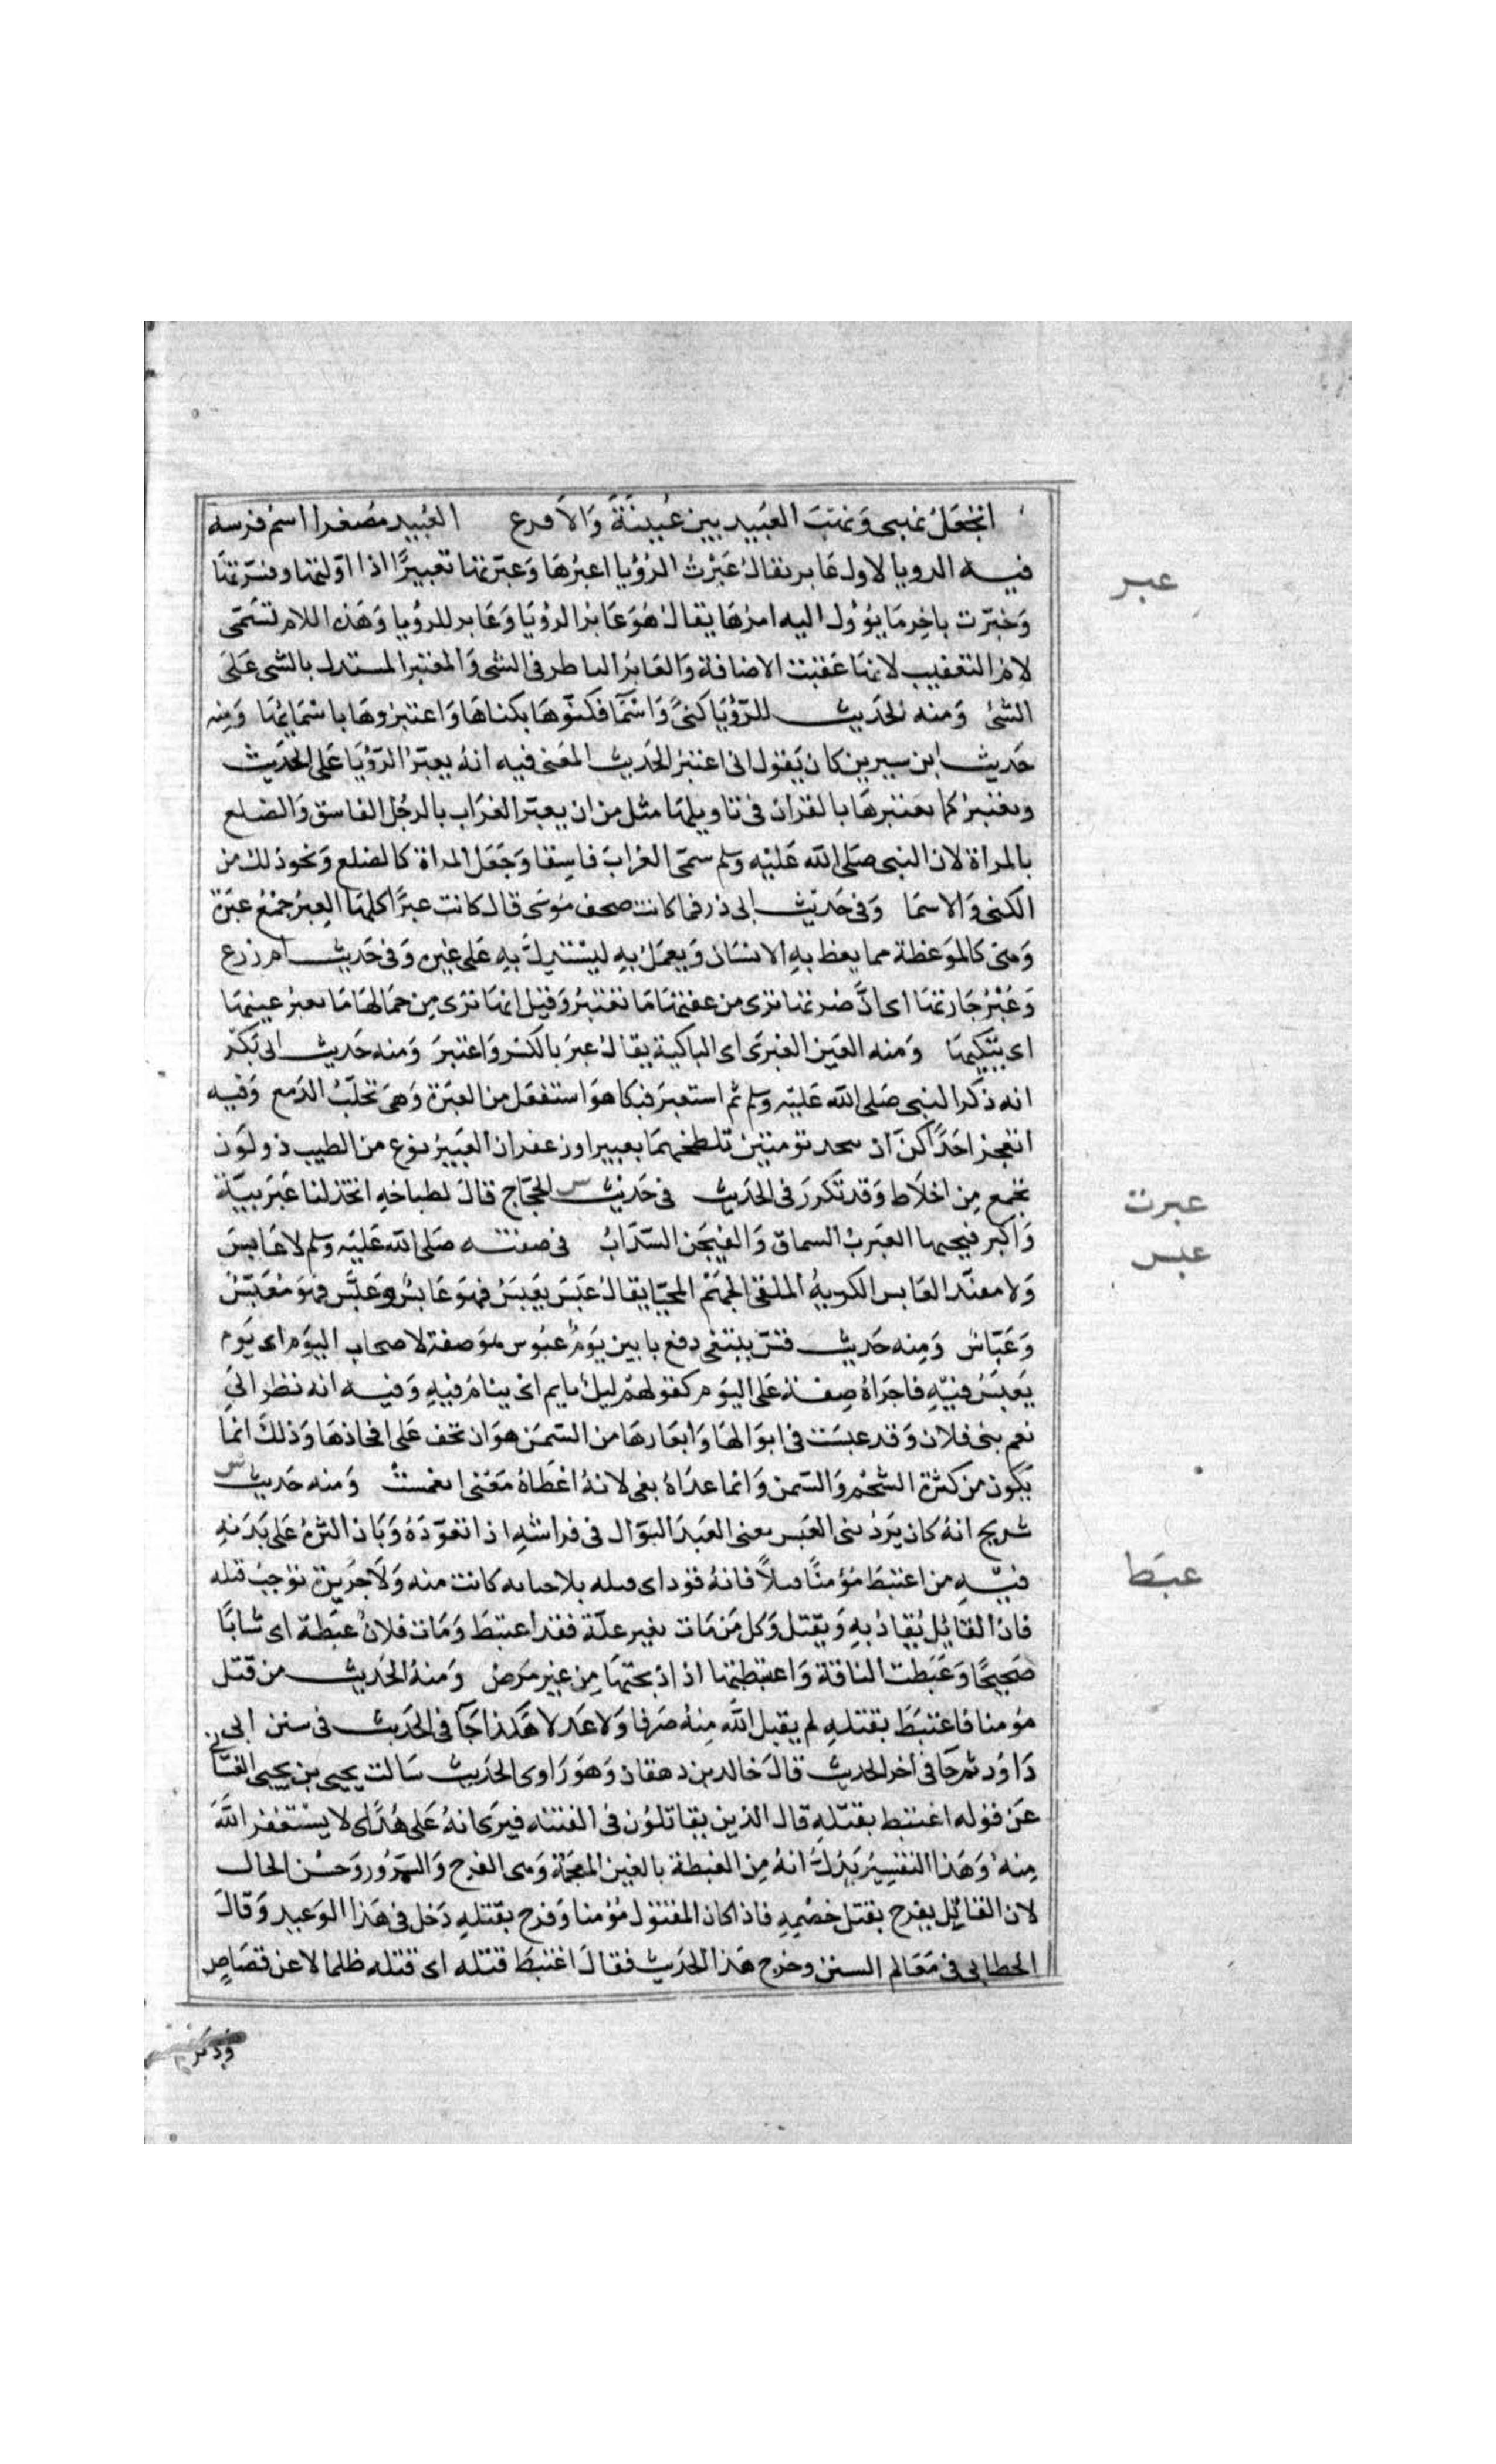 اتجعل نهبي ونهب العبيد بين عُيينة والاقرع العُبيد مصغرا اسم فرسه
عبر
فيه الرويا لاول عابر يقال عَبَرْتُ الرُؤيا اعبُرها وَعبّرتها تعبيرًا اذا اوّلتها وفسّرتها
وَخبّرت باخِر مَا يؤول اليه امرها يقال هُوَ عَابر الرؤيَا وَعَابر للرؤيا وَهَذه اللام تسَمّى
لامَ التعقيب لانهَا عَقبت الاضافة وَالعَابرُ الناظر فى الشى وَالمعتبر المستدل بالشى عَلىَ
الشئ وَمنه الحَديث للرّؤيَا كنىً وَاسْمَآ فكنّوهَا بكناهَا وَاعتبروهَا باسْمَائهَا وَمنه
حَديث ابن سيرين كان يَقول انى اعتبرُ الحَديث المعَنى فيه انهُ يعبّرُ الرّؤيَا عَلى الحَديث
ويعتبرُ كما يعتبرهَا بالقران فى تاويلهَا مثل من ان يعبّر الغرَاب بالرجُل الفاسق وَالضلع
بالمراة لان النبى صَلى الله عَليْه وسلم سمّى الغرابَ فاسِقا وَجَعَل المراة كالضلع وَنحو ذلك من
الكنى وَالاسمَا وَفى حَديث ابى ذر فما كانت صحف مُوسَى قال كانت عبرًا كلهَا العِبرُ جمْعُ عبرَة
وَهىَ كالمَوعظة مما يعظ بهِ الانسَان وَيعمَلُ بهِ ليسْتدِلَّ بهِ عَلى غيره وَفى حَديث ام زرع
وَعُبْرُ جَارتهَا اى انَّ ضرتها ترى من عفتهَا مَا تعتبرُ وَقيل انهَا ترَى مِن جمَالهَا مَا يعبرُ عينهَا
اى يُبكيهَا وَمنه العَين العَبرَى اى الباكية يقال عبرَ بالكسْر وَاعتبرَ وَمنه حَديث ابى بَكر
انه ذكر النبى صَلى الله عَليْه وسلم ثم استعبرَ فبكا هوَ استفعَل من العبَرَة وَهىَ تحلّبُ الدّمع وَفيه
اتعجز احَدَاكنّ ان تتخذ تومتين تلطخهمَا بعبير او زعفران العَبيرُ نوع من الطيب ذو لَون
عبرت
يُجمع مِن اخلاط وَقد تَكررَ فى الحَديث فى حَديث س الحجّاج قالَ لطباخهِ اتخذ لنا عَبرَبيّة
عبس
وَاكبر فيجنها العَبَربُ السماق وَالفيجَن السّذابُ فى صفته صَلى الله عَليْه وسلم لا عَابسَ
وَلا مفنّد العَابس الكريهُ الملقى الجَهْم المحيّا يقال عَبَسَ يَعْبسُ فهوَ عَابسٌ وَعَبَّس فهوَ مُعَبّسٌ
وَعَبّاسٌ وَمِنه حَديث قسّ يبتغى دفع باس يَوم عبُوس هوَ صفة لاصحاب اليوَم اى يَوم
يَعبسُ فيهِ فاجرَاهُ صِفة عَلى اليوَم كقولهمْ ليل نايم اى ينام فيهِ وَفيه انه نظر الىَ
نعم بنى فلان وَقد عبسَت فى ابوَالهَا وَابعَارهَا من السّمَن هوَ ان تجف عَلى افخاذهَا وَذلكَ انمَا
يَكون من كثرة الشّحْم وَالسّمن وَانما عدَاهُ بفى لانهُ اعْطاهُ مَعنى انغمستْ وَمنه حَديث س
شريح انهُ كان يَرُدُّ من العَبَس يعنى العَبدَ البوّال فى فراشهِ اذا تعَوّدَهُ وَبَان اثرهُ عَلى بَدَنهِ
عبط
فيهِ من اعتبَطَ مُؤمنًا قتلاً فانهُ قوَد اى قتله بلا جنايه كانت منه وَلا جَريرة توجبُ قتله
فان القاتِل يُقاد بهِ وَيقتل وَكل مَن مَات بغير علّة فقد اعتبَطَ وَمَات فلانٌ عَبْطة اى شابّا
صَحِيحًا وَعَبَطت الناقة وَاعتبطتها اذا ذبحتهَا مِن غير مَرض وَمنهُ الحَديث من قتل
مؤمنا فاعتبَطَ بقتلهِ لم يقبل اللّه مِنهُ صَرفا وَلا عَدلا هَكذا جَآ فى الحَديث فى سنن ابى
دَاوُد ثم جَا فى آخر الحديث قالَ خالد بن دهقان وَهوَ رَاوى الحَديث سَالت يحيى بن يحيى الغسّانى
عَن قوله اعتبط بقتلهِ قال الذين يقاتلوُن فى الفتنه فيَرى انهُ عَلى هُدًى لا يسْتغفر اللّهَ
مِنهُ وَهَذا التفسِيرُ يَدُلُّ انهُ مِنَ الغبطة بالغين المعجمَة وَهى الفرح وَالسّرُور وَحسْن الحَال
لان القاتِل يفرح بقتل خصْمِهِ فاذا كان المقتول مُؤمنا وَفرح بقتلهِ دَخل فى هَذا الوَعيد وَقالَ
الخطابى فى مَعَالم السنن وَخرج هَذا الحَديث فقالَ اعتبَطَ قتله اى قتله ظلما لا عن قصَاصٍ
وَذكر